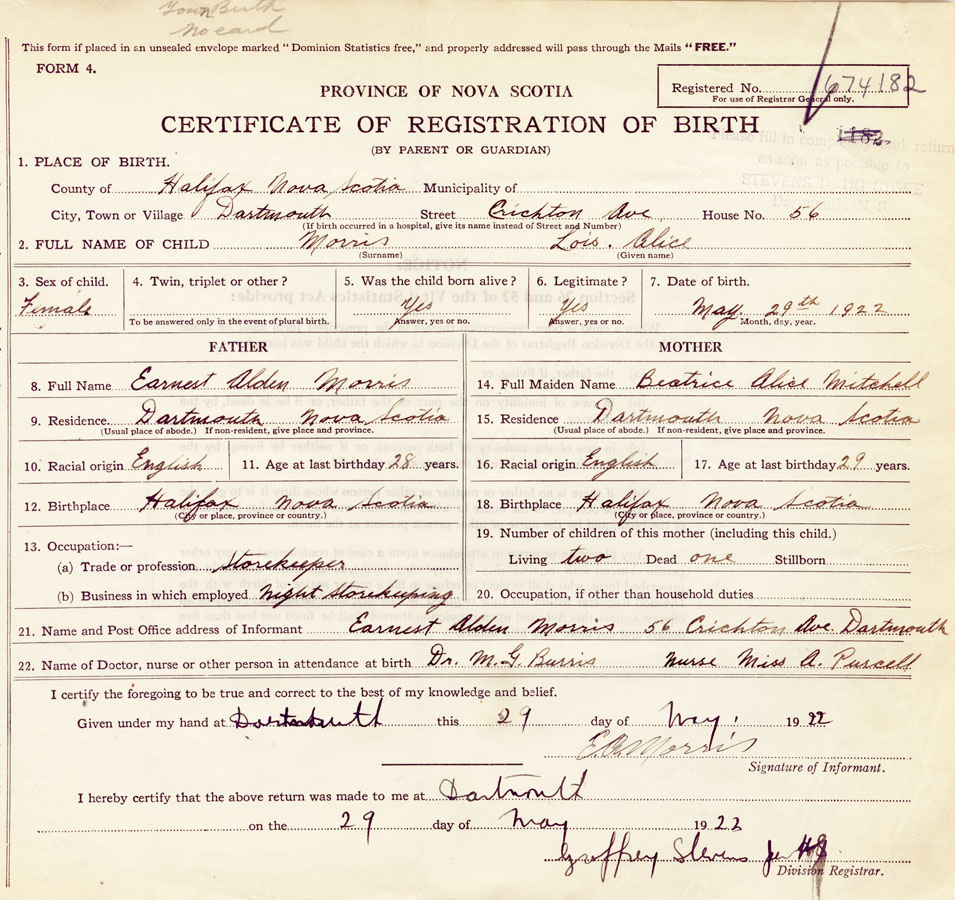 Town Birth
No card
This form if placed in an unsealed envelope marked "Dominion Statistics free," and properly addressed will pass through the Mails "FREE."
FORM 4.
Registered No. 674182
For use of Registrar General only.
PROVINCE OF NOVA SCOTIA
CERTIFICATE OF REGISTRATION OF BIRTH
1182
(BY PARENT OR GUARDIAN)
Please fill in completely and return
as soon as possible to
STEVENS DRUG STORE
Dartmouth, N.S.
1. PLACE OF BIRTH.
County of Halifax Nova Scotia Municipality of
City, Town or Village Dartmouth Street Crichton Ave House No. 56
(If birth occurred in a hospital, give its name instead of Street and Number)
2. FULL NAME OF CHILD Morris Lois. Alice
(Surname) (Given name)
3. Sex of child. 4. Twin, triplet or other? 5. Was the child born alive? 6. Legitimate? 7. Date of birth.
Female Yes Yes May. 29th 1922
To be answered only in the event of plural birth. Answer, yes or no. Answer, yes or no. Month, day, year.
FATHER MOTHER
8. Full Name Earnest Alden Morris 14. Full Maiden Name Beatrice Alice Mitchell
9. Residence Dartmouth Nova Scotia 15. Residence Dartmouth Nova Scotia
(Usual place of abode.) If non-resident, give place and province. (Usual place of abode.) If non-resident, give place and province.
10. Racial origin English 11. Age at last birthday 28 years. 16. Racial origin English 17. Age at last birthday 29 years.
12. Birthplace Halifax Nova Scotia 18. Birthplace Halifax Nova Scotia
(City or place, province or country.) (City or place, province or country.)
13. Occupation:— 19. Number of children of this mother (including this child.)
(a) Trade or profession Storekeeper Living two Dead one Stillborn
(b) Business in which employed Night Storekeeping 20. Occupation, if other than household duties
21. Name and Post Office address of Informant Earnest Alden Morris 56 Crichton Ave. Dartmouth
22. Name of Doctor, nurse or other person in attendance at birth Dr. M. G. Burris Nurse Miss A. Purcell
I certify the foregoing to be true and correct to the best of my knowledge and belief.
Given under my hand at Dartmouth this 29 day of May. 1922
E. A. Morris
Signature of Informant.
I hereby certify that the above return was made to me at Dartmouth
on the 29 day of May 1922
Geoffrey Stevens
Division Registrar.